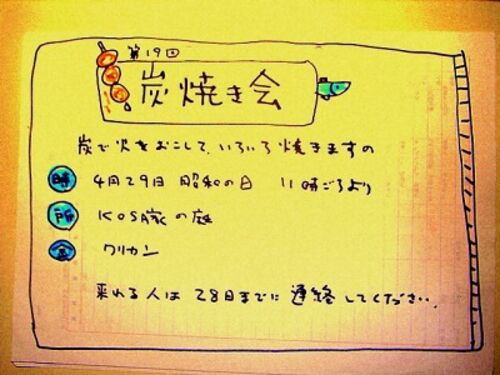 第19回
炭焼き会
炭で火をおこして、いろいろ焼きますの
時 4月29日 昭和の日 11時ごろより
所 KOSA家の庭
金 ワリカン
来れる人は28日までに連絡してください。